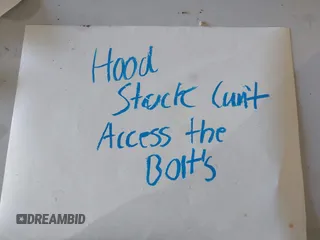 Hood
Stuck Cun't
Access the
Bolt's
DREAMBID